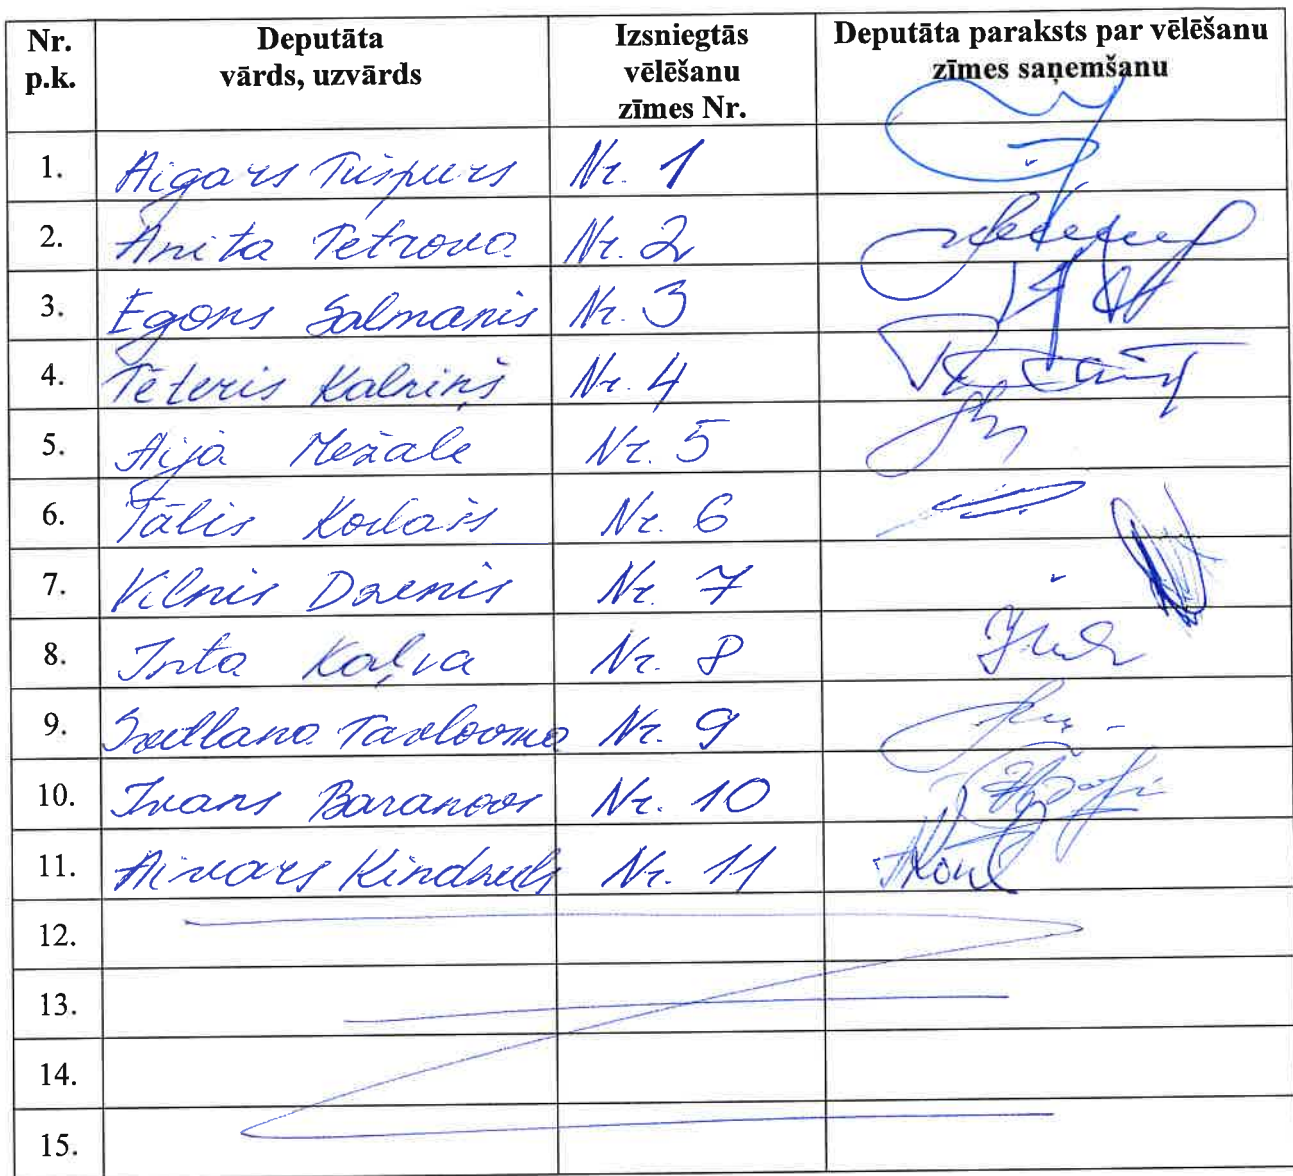 Nr. p.k. Deputāta vārds, uzvārds Izsniegtās vēlēšanu zīmes Nr. Deputāta paraksts par vēlēšanu zīmes saņemšanu
1. Aigars Puspurs Nr. 1
2. Anita Petrova Nr. 2
3. Egons Salmanis Nr. 3
4. Pēteris Kalniņš Nr. 4
5. Aija Mežale Nr. 5
6. Tālis Nr. 6
7. Vilnis Dzenis Nr. 7
8. Inta Kaļva Nr. 8
9. Svetlana Pavlovina Nr. 9
10. Ivans Baranovs Nr. 10
11. Aivars Nr. 11
12.
13.
14.
15.